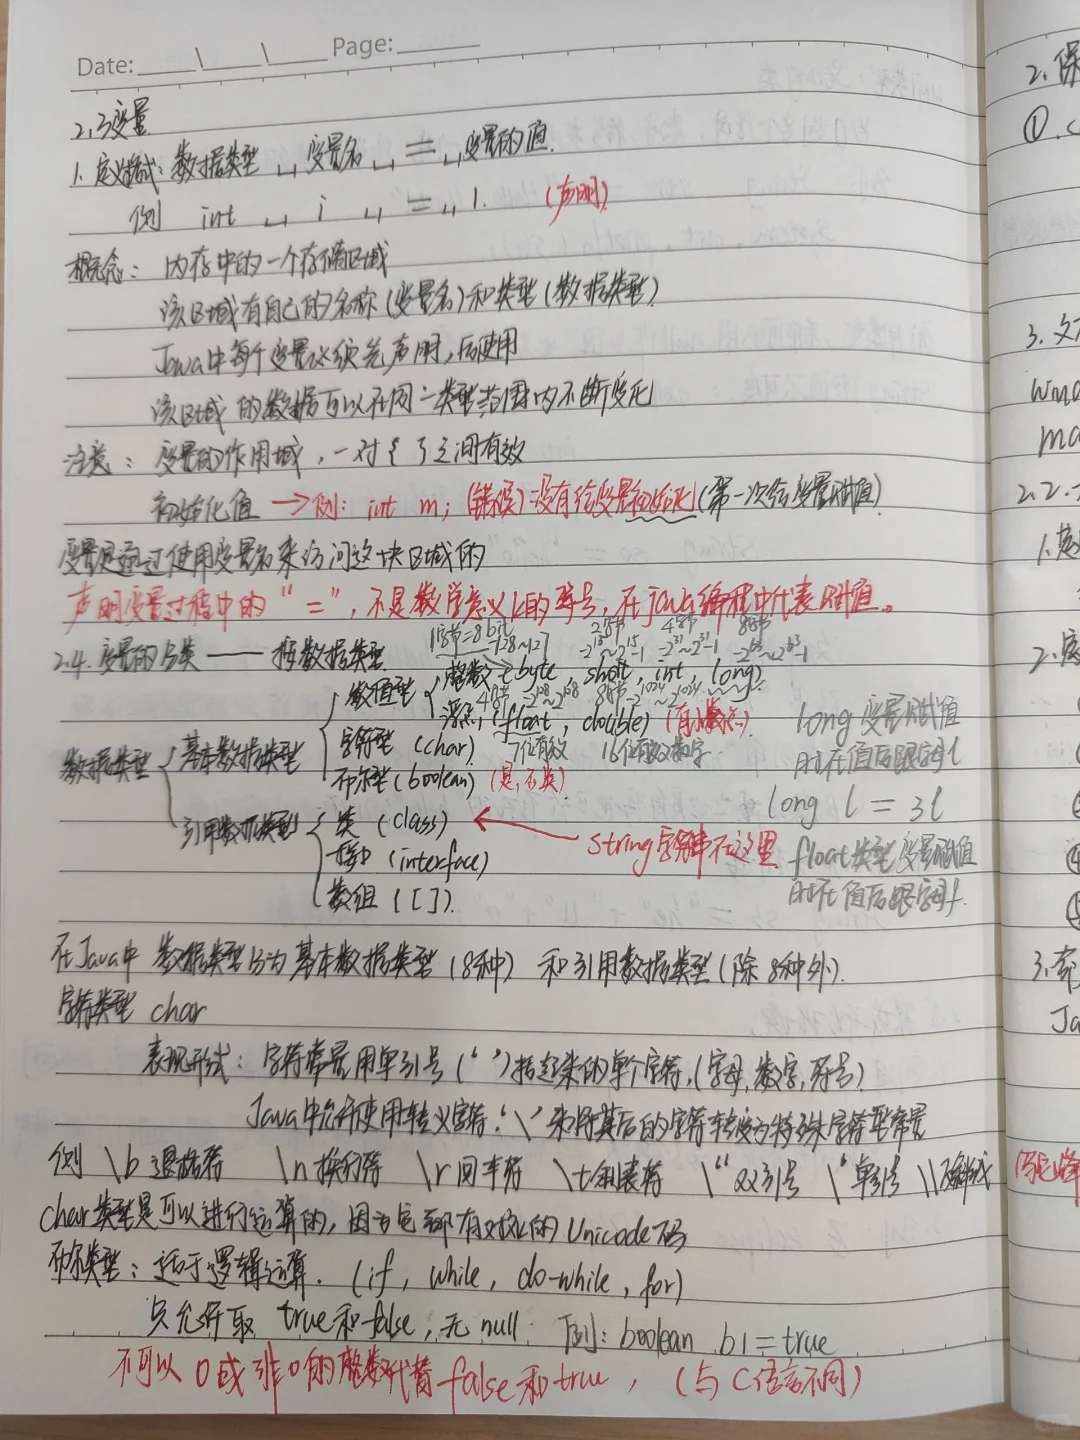 Date: ____\____\____ Page: ______
2.3变量
1. 定义格式: 数据类型 ␣ 变量名 ␣ = ␣ 变量的值.
例 int ␣ i ␣ = ␣ 1. (声明)
概念: 内存中的一个存储区域
该区域有自己的名称(变量名)和类型(数据类型)
Java中每个变量必须先声明,后使用
该区域的数据可以在同一类型范围内不断变化
注意: 变量的作用域, 一对{ }之间有效
初始化值 →例: int m; (错误) 没有给变量初始化(第一次给变量赋值)
变量是通过使用变量名来访问这块区域的
声明变量过程中的"=", 不是数学意义上的等号, 在java编程中代表赋值。
2.4. 变量的分类 —— 按数据类型
1字节=8bit -128~127 2字节 -2^15~2^15-1 4字节 -2^31~2^31-1 8字节 -2^63~2^63-1
数值型 整数 (byte, short, int, long).
4字节 -2^128~2^128 8字节 -2^1024~2^1024
浮点 (float, double) (有小数点)
7位有效 16位有效数字
数据类型 基本数据类型 字符型 (char)
布尔型 (boolean) (是,否类)
引用数据类型 类 (class) ← string字符串在这里
接口 (interface)
数组 ([]).
long 变量赋值
时在值后跟字母l
long l = 3l
float类型变量赋值
时在值后跟字母f.
在Java中 数据类型分为基本数据类型 (8种) 和引用数据类型 (除8种外).
字符类型 char
表现形式: 字符常量用单引号 (' ') 括起来的单个字符, (字母,数字,符号)
Java中允许使用转义字符'\'来将其后的字符转变为特殊字符型常量
例 \b 退格符 \n 换行符 \r 回车符 \t 制表符 \" 双引号 \' 单引号 \\ 反斜线
char类型是可以进行运算的, 因为它都有对应的Unicode码
布尔类型: 适于逻辑运算. (if, while, do-while, for)
只允许取 true和false, 无 null 例: boolean b1 = true
不可以 0 或非0的整数代替false和true, (与C语言不同)
2. 保
1. C
3. 文
2.2.
1.
2.
3.
Ja